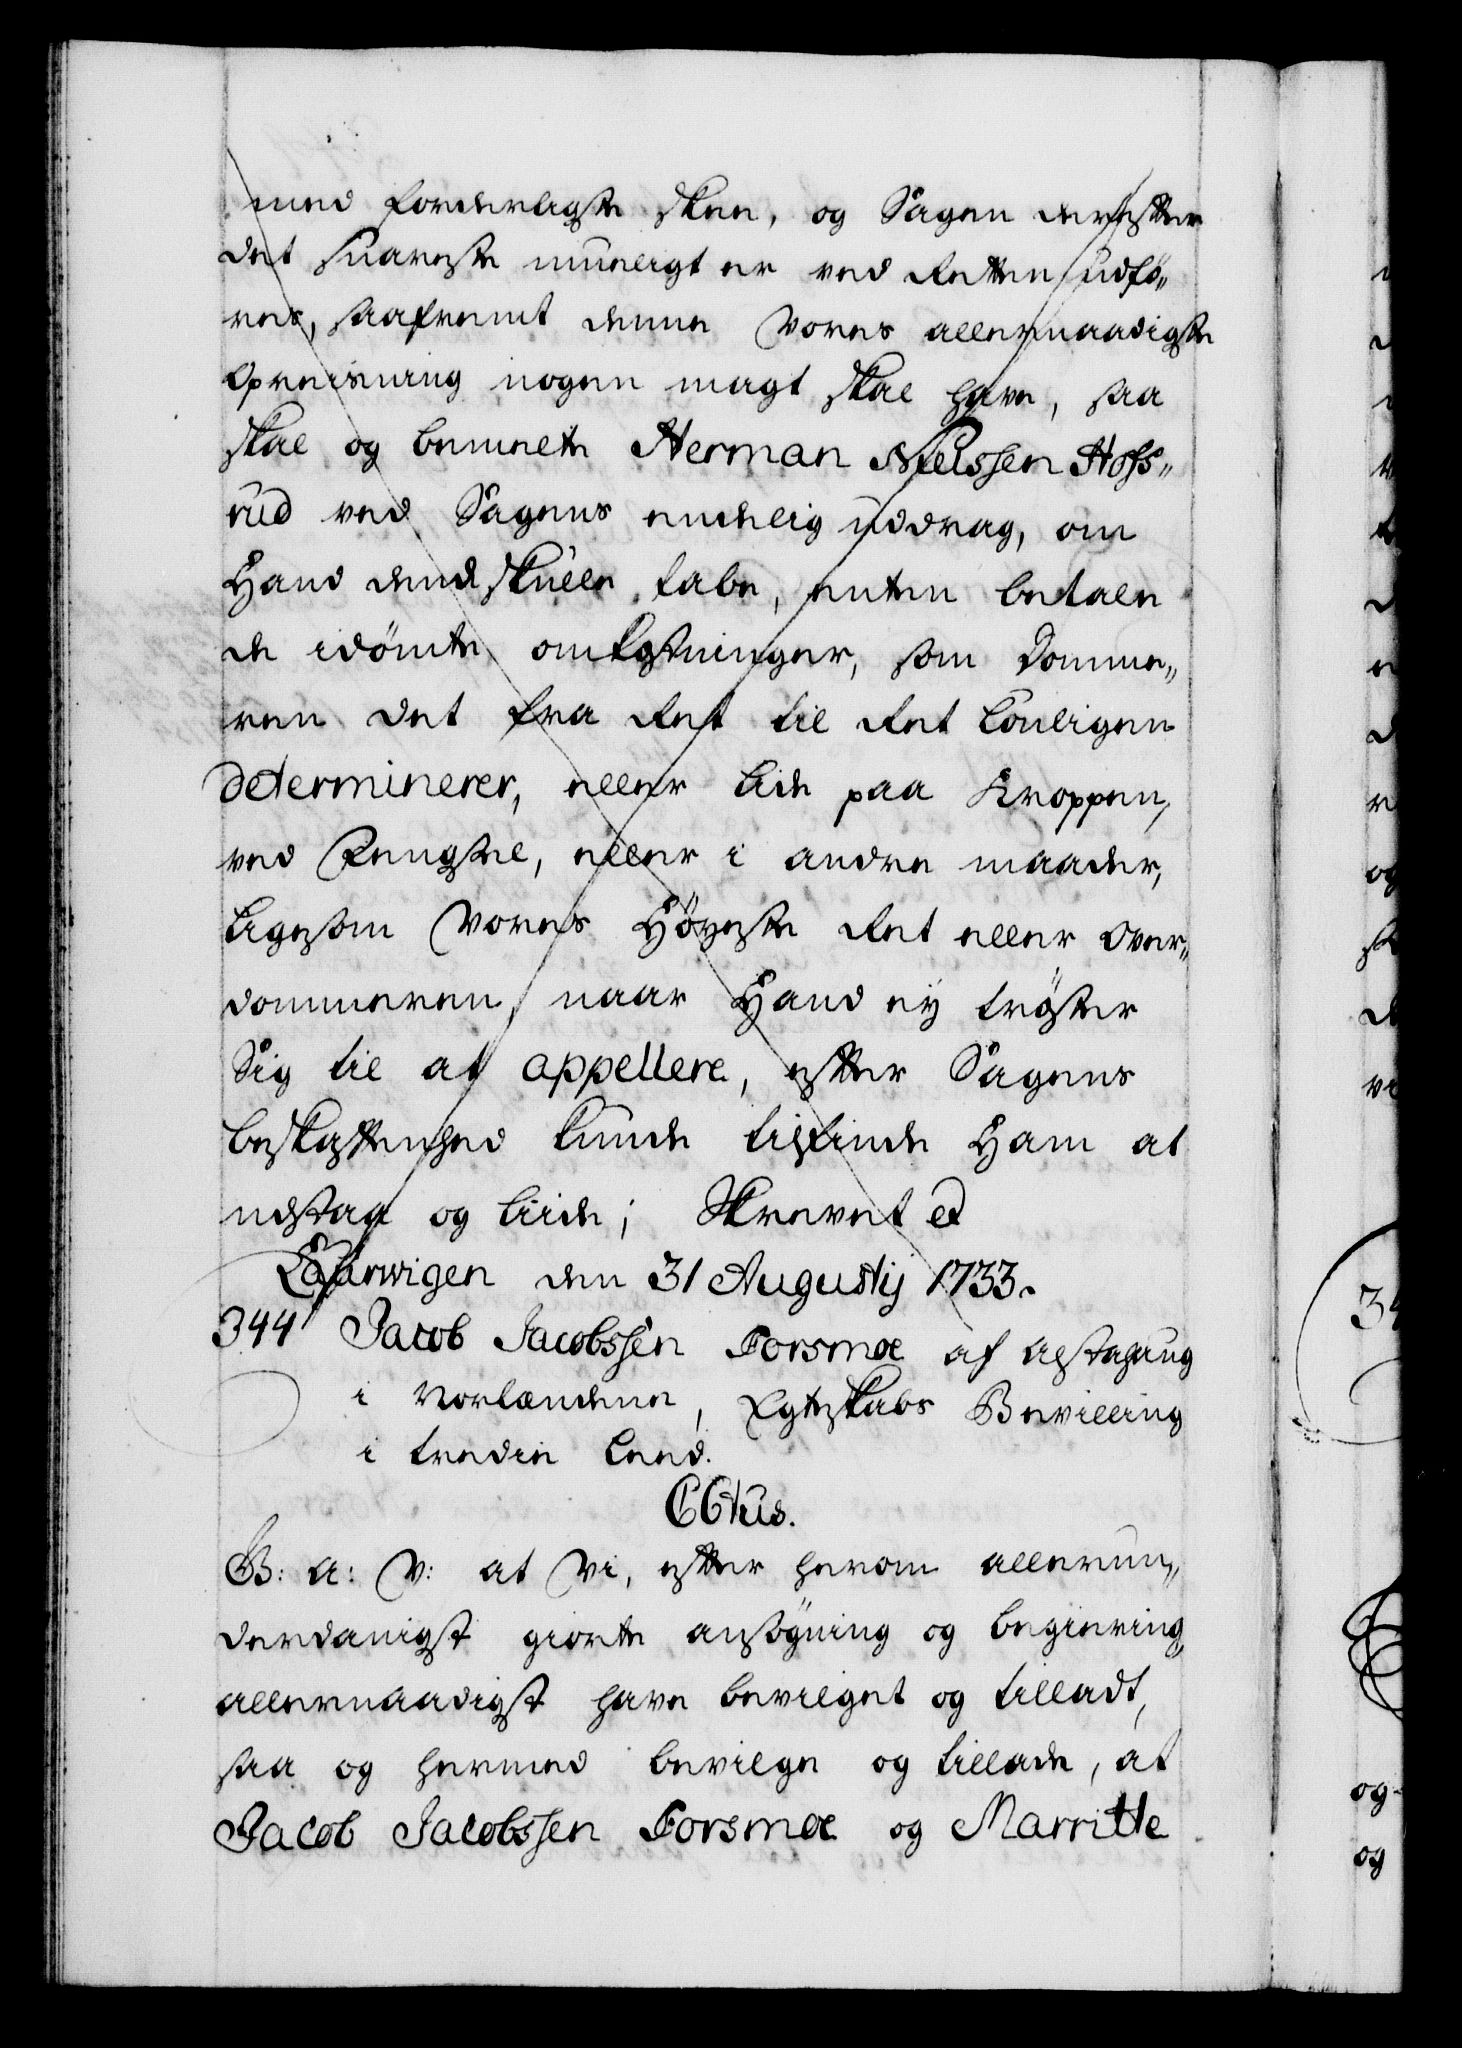 med forderligste skee, og Sagen derefter
det snareste mueligt er ved Retten udfø„
res, saafremt denne Vores allernaadigste
Opreisning nogen magt skal have, saa
skal og bemelte Herman Nielssen Hofs„
rud ved Sagens endelig uddrag, om
Hand dend skulle tabe, enten betale
de idömte omkostninger, som Domme„
ren det fra Ret til Ret Lovligen
determinerer, eller lide paa Kroppen,
ved Fengsel, eller i andre maader,
ligesom Vores Høyeste Ret eller Over„
dommeren, naar Hand ey trøster
Sig til at appellere, efter Sagens
beskaffenhed kunde tilfinde Ham at
udstaa og liide; Skrevet etc
Laurwigen den 31 Augustij 1733.
344 Jacob Jacobssen Forsmoe af Alstahaug
i Norlandene, Egteskabs Bevilling
i tredie Leed.
C6tus.
G: A: V: at Vi, efter herom allerun„
derdanigst giorte ansögning og begiering
allernaadigst have bevilget og tilladt,
saa og hermed bevilge og tillade, at
Jacob Jacobssen Forsmoe og Marritte